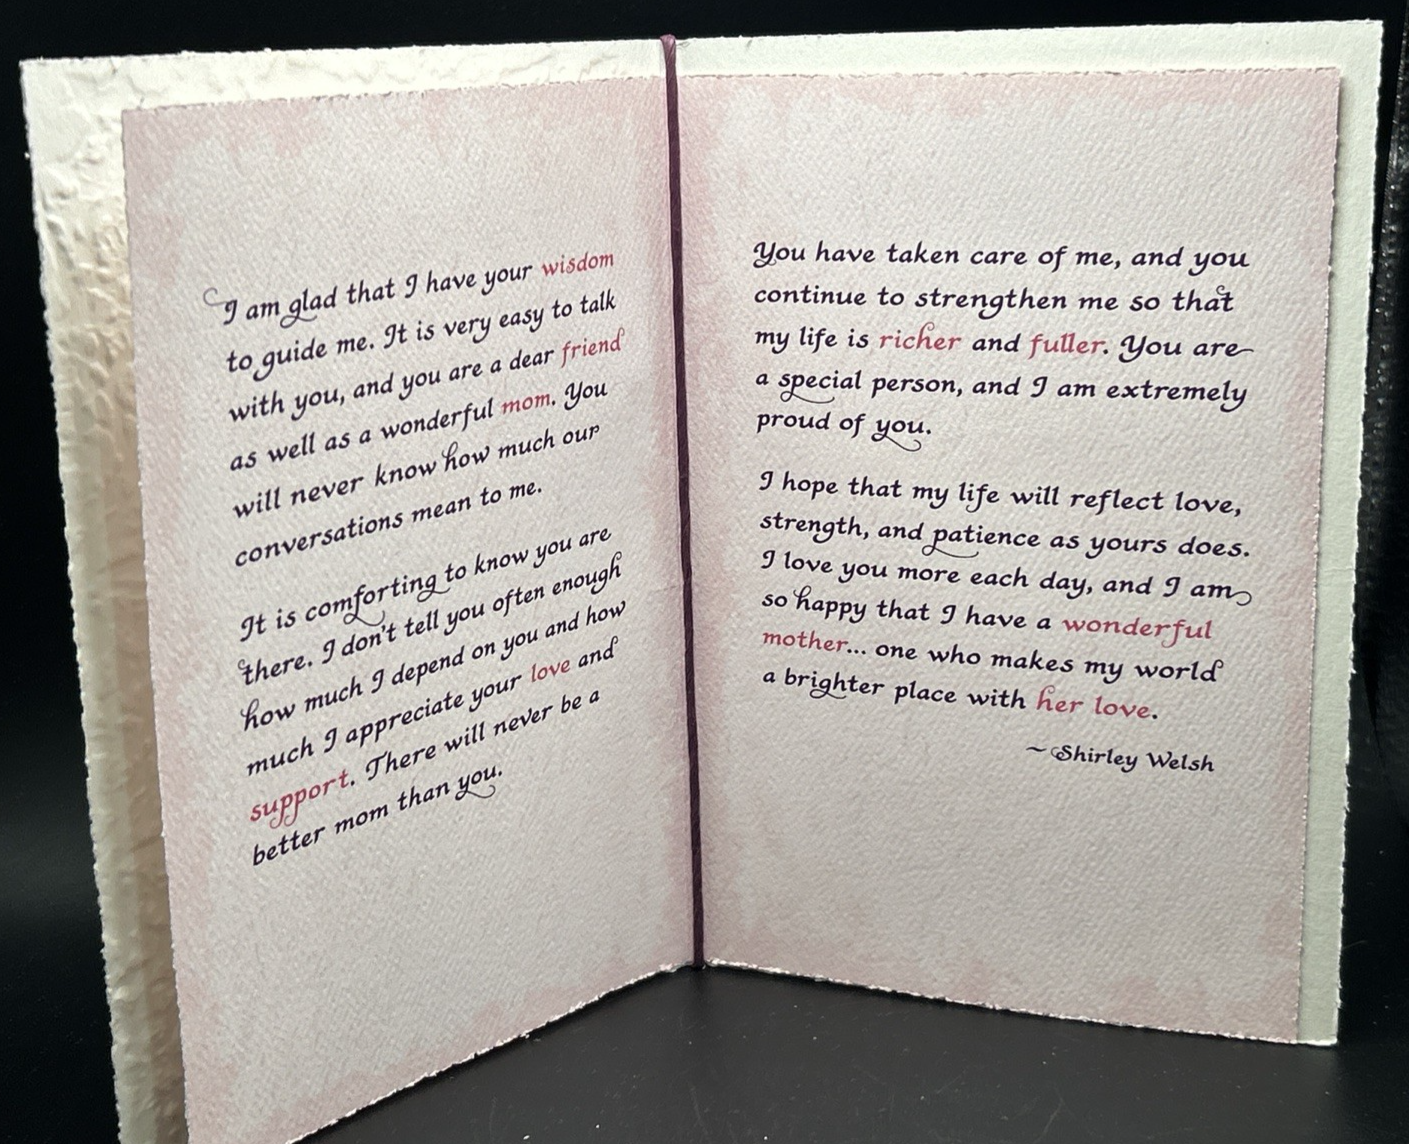 I am glad that I have your wisdom
to guide me. It is very easy to talk
with you, and you are a dear friend
as well as a wonderful mom. You
will never know how much our
conversations mean to me.
It is comforting to know you are
there. I don't tell you often enough
how much I depend on you and how
much I appreciate your love and
support. There will never be a
better mom than you.
You have taken care of me, and you
continue to strengthen me so that
my life is richer and fuller. You are
a special person, and I am extremely
proud of you.
I hope that my life will reflect love,
strength, and patience as yours does.
I love you more each day, and I am
so happy that I have a wonderful
mother... one who makes my world
a brighter place with her love.
~ Shirley Welsh